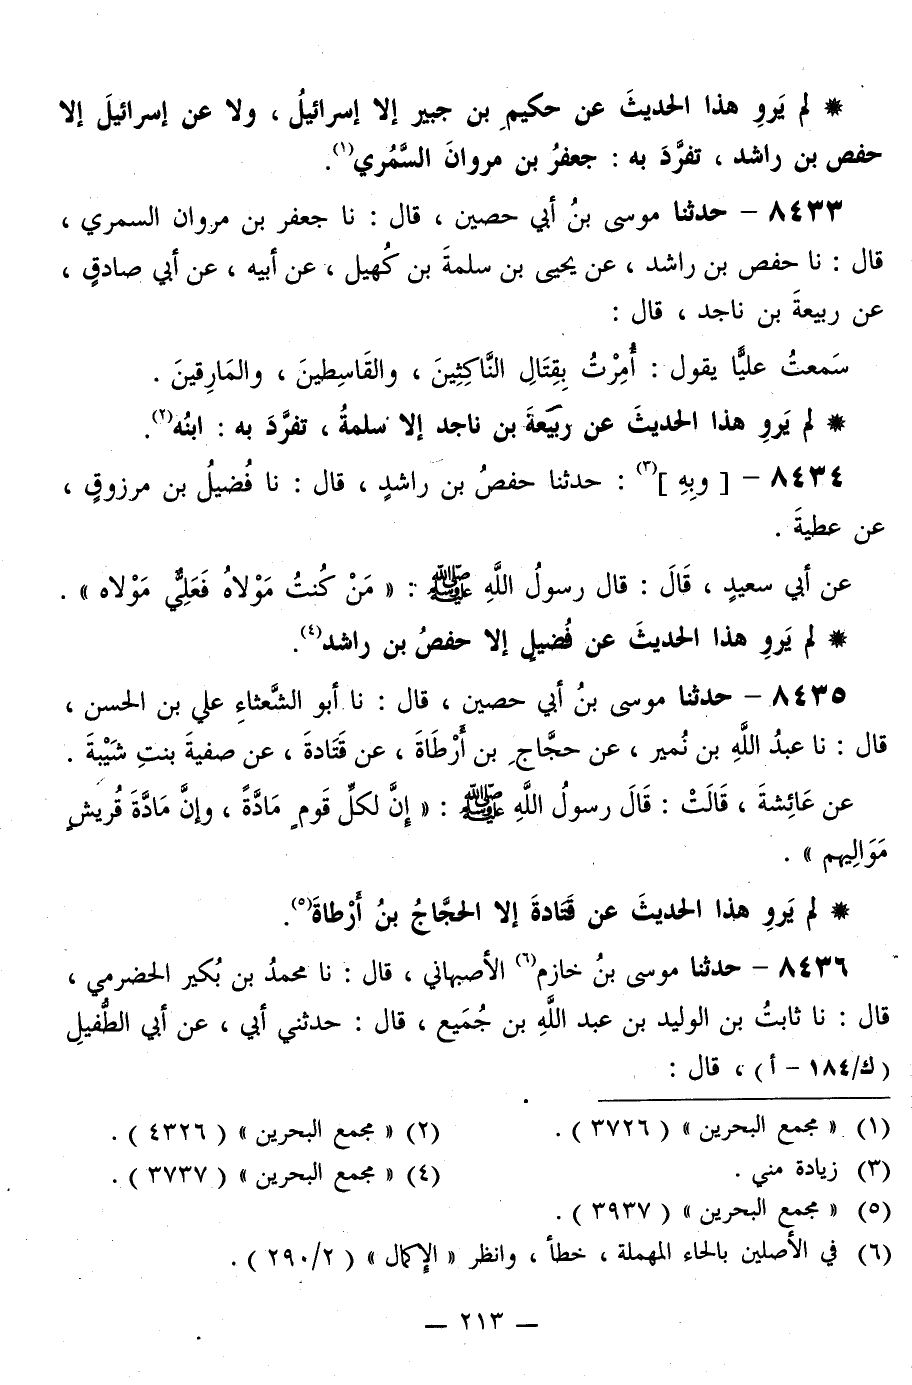 * لم يَروِ هذا الحديثَ عن حكيمِ بن جبير إلا إسرائيلُ ، ولا عن إسرائيلَ إلا
حفص بن راشد ، تفرَّدَ به : جعفرُ بن مروانَ السَّمُري(١).
٨٤٣٣ – حدثنا موسى بنُ أبي حصين ، قال : نا جعفر بن مروان السمري ،
قال : نا حفص بن راشد ، عن يحيى بن سلمةَ بن كُهيل ، عن أبيه ، عن أبي صادقٍ ،
عن ربيعةَ بن ناجد ، قال :
سَمعتُ عليًّا يقول : أُمِرْتُ بِقِتَالِ النَّاكِثِينَ ، والقَاسِطينَ ، والمَارِقينَ .
* لم يَروِ هذا الحديثَ عن ربيعةَ بن ناجد إلا سلمةُ ، تفرَّدَ به : ابنُه(٢).
٨٤٣٤ – [ وبِهِ ](٣) : حدثنا حفصُ بن راشدٍ ، قال : نا فُضيلُ بن مرزوقٍ ،
عن عطيةَ .
عن أبي سعيدٍ ، قَالَ : قال رسولُ اللَّهِ ﷺ : « مَنْ كُنتُ مَوْلاهُ فَعَلِيٌّ مَوْلاه » .
* لم يَروِ هذا الحديثَ عن فُضيلٍ إلا حفصُ بن راشد(٤).
٨٤٣٥ – حدثنا موسى بنُ أبي حصين ، قال : نا أبو الشَّعثاءِ علي بن الحسن ،
قال : نا عبدُ اللَّهِ بن نُمير ، عن حجَّاجِ بن أَرْطَاةَ ، عن قَتَادةَ ، عن صفيةَ بنتِ شَيْبةَ .
عن عَائِشةَ ، قَالَتْ : قَالَ رسولُ اللَّهِ ﷺ : « إِنَّ لكلِّ قَومٍ مَادَّةً ، وإنَّ مَادَّةَ قُريشٍ
مَوَالِيهم » .
* لم يَروِ هذا الحديثَ عن قَتَادةَ إلا الحجَّاجُ بنُ أَرْطاةَ(٥).
٨٤٣٦ – حدثنا موسى بنُ خازم(٦) الأصبهاني ، قال : نا محمدُ بن بُكير الحضرمي ،
قال : نا ثابتُ بن الوليد بن عبد اللَّهِ بن جُمَيع ، قال : حدثني أبي ، عن أبي الطُّفيلِ
( ك/١٨٤ – أ ) ، قال :
(١) « مجمع البحرين » ( ٣٧٢٦ ) . (٢) « مجمع البحرين » ( ٤٣٢٦ ) .
(٣) زيادة مني . (٤) « مجمع البحرين » ( ٣٧٣٧ ) .
(٥) « مجمع البحرين » ( ٣٩٣٧ ) .
(٦) في الأصلين بالحاء المهملة ، خطأ ، وانظر « الإكمال » ( ٢٩٠/٢ ) .
— ٢١٣ —